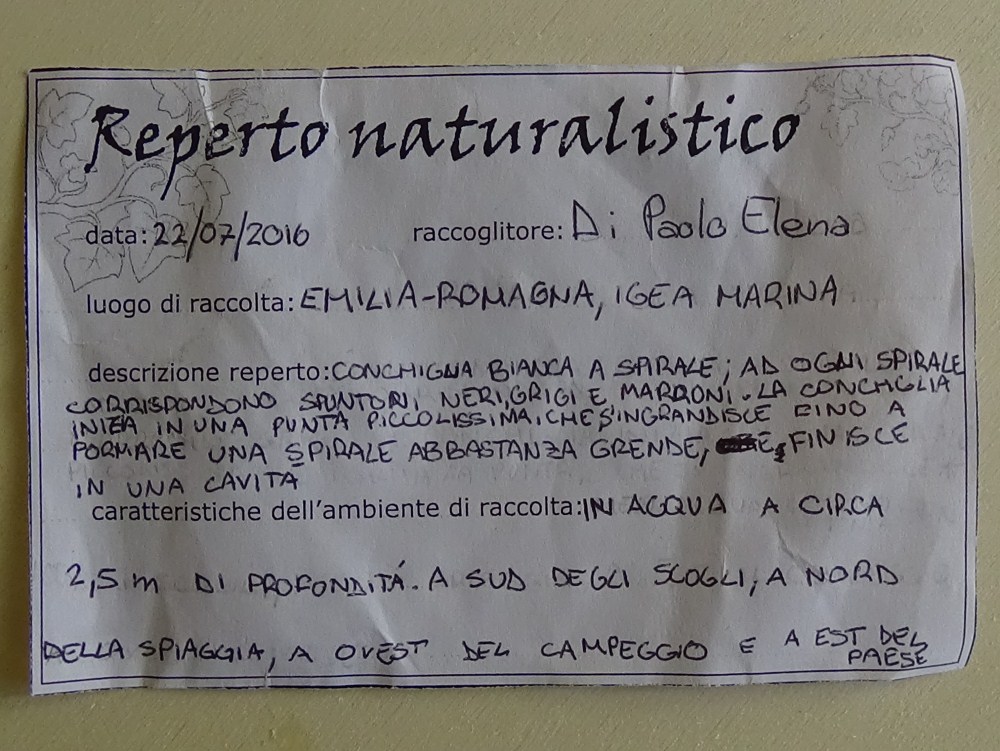 Reperto naturalistico
data: 22/07/2016 raccoglitore: Di Paolo Elena
luogo di raccolta: EMILIA-ROMAGNA, IGEA MARINA
descrizione reperto: CONCHIGLIA BIANCA A SPIRALE; AD OGNI SPIRALE
CORRISPONDONO SPUNTONI NERI, GRIGI E MARRONI. LA CONCHIGLIA
INIZIA IN UNA PUNTA PICCOLISSIMA, CHE S'INGRANDISCE FINO A
FORMARE UNA SPIRALE ABBASTANZA GRENDE, E, FINISCE
IN UNA CAVITÀ
caratteristiche dell'ambiente di raccolta: IN ACQUA A CIRCA
2,5 m DI PROFONDITÁ. A SUD DEGLI SCOGLI, A NORD
DELLA SPIAGGIA, A OVEST DEL CAMPEGGIO E A EST DEL
PAESE